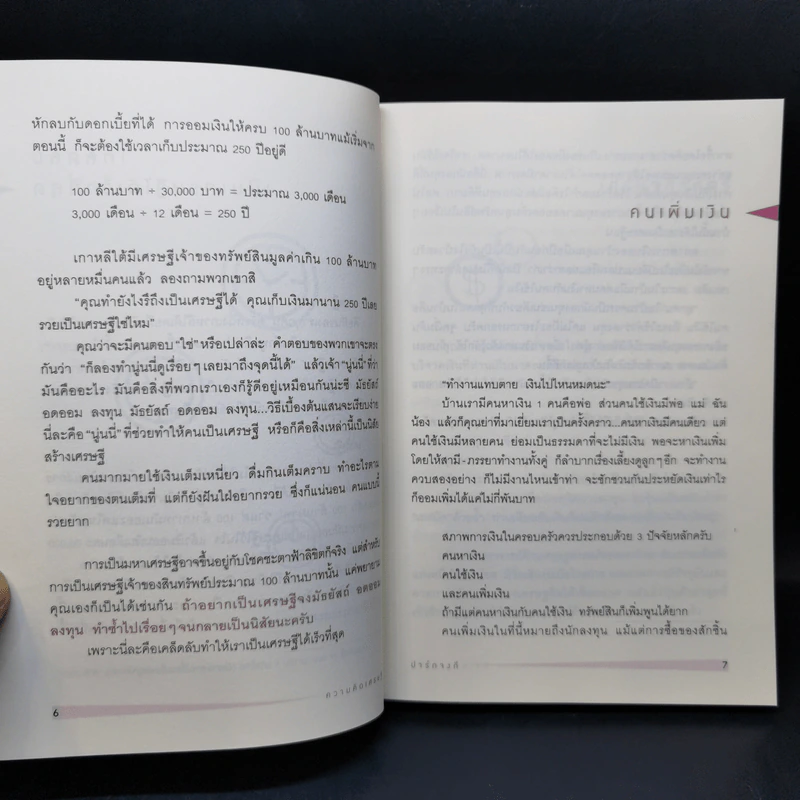 หักลบกับดอกเบี้ยที่ได้ การออมเงินให้ครบ 100 ล้านบาทแม้เริ่มจาก
ตอนนี้ ก็จะต้องใช้เวลาเก็บประมาณ 250 ปีอยู่ดี
100 ล้านบาท ÷ 30,000 บาท = ประมาณ 3,000 เดือน
3,000 เดือน ÷ 12 เดือน = 250 ปี
เกาหลีใต้มีเศรษฐีเจ้าของทรัพย์สินมูลค่าเกิน 100 ล้านบาท
อยู่หลายหมื่นคนแล้ว ลองถามพวกเขาสิ
“คุณทำยังไงรึถึงเป็นเศรษฐีได้ คุณเก็บเงินมานาน 250 ปีเลย
รวยเป็นเศรษฐีใช่ไหม”
คุณว่าจะมีคนตอบ “ใช่” หรือเปล่าล่ะ คำตอบของพวกเขาจะตรง
กันว่า “ก็ลองทำนู่นนี่ดูเรื่อยๆ เลยมาถึงจุดนี้ได้” แล้วเจ้า “นู่นนี่” ที่ว่า
มันคืออะไร มันคือสิ่งที่พวกเราเองก็รู้ดีอยู่เหมือนกันน่ะซี มัธยัสถ์
อดออม ลงทุน มัธยัสถ์ อดออม ลงทุน...วิธีเบื้องต้นแสนจะเรียบง่าย
นี่ละคือ “นู่นนี่” ที่ช่วยทำให้คนเป็นเศรษฐี หรือก็คือสิ่งเหล่านี้เป็นนิสัย
สร้างเศรษฐี
คนมากมายใช้เงินเต็มเหนี่ยว ดื่มกินเต็มคราบ ทำอะไรตาม
ใจอยากของตนเต็มที่ แต่ก็ยังฝันใฝ่อยากรวย ซึ่งก็แน่นอน คนแบบนี้
รวยยาก
การเป็นมหาเศรษฐีอาจขึ้นอยู่กับโชคชะตาฟ้าลิขิตก็จริง แต่สำหรับ
การเป็นเศรษฐีเจ้าของสินทรัพย์ประมาณ 100 ล้านบาทนั้น แค่พยายาม
คุณเองก็เป็นได้เช่นกัน ถ้าอยากเป็นเศรษฐีจงมัธยัสถ์ อดออม
ลงทุน ทำซ้ำไปเรื่อยๆ จนกลายเป็นนิสัยนะครับ
เพราะนี่ละคือเคล็ดลับทำให้เราเป็นเศรษฐีได้เร็วที่สุด
6
คนเพิ่มเงิน
“ทำงานแทบตาย เงินไปไหนหมดนะ”
บ้านเรามีคนหาเงิน 1 คนคือพ่อ ส่วนคนใช้เงินมีพ่อ แม่ ฉัน
น้อง แล้วก็คุณย่าที่มาเยี่ยมเราเป็นครั้งคราว...คนหาเงินมีคนเดียว แต่
คนใช้เงินมีหลายคน ย่อมเป็นธรรมดาที่จะไม่มีเงิน พอจะหาเงินเพิ่ม
โดยให้สามี-ภรรยาทำงานทั้งคู่ ก็ลำบากเรื่องเลี้ยงดูลูกๆ อีก จะทำงาน
ควบสองอย่าง ก็ไม่มีงานไหนเข้าท่า จะชักชวนกันประหยัดเงินเท่าไร
ก็ออมเพิ่มได้แค่ไม่กี่พันบาท
สภาพการเงินในครอบครัวควรประกอบด้วย 3 ปัจจัยหลักครับ
คนหาเงิน
คนใช้เงิน
และคนเพิ่มเงิน
ถ้ามีแต่คนหาเงินกับคนใช้เงิน ทรัพย์สินก็เพิ่มพูนได้ยาก
คนเพิ่มเงินในที่นี้หมายถึงนักลงทุน แม้แต่การซื้อของสักชิ้น
ปาร์คจงกี
7